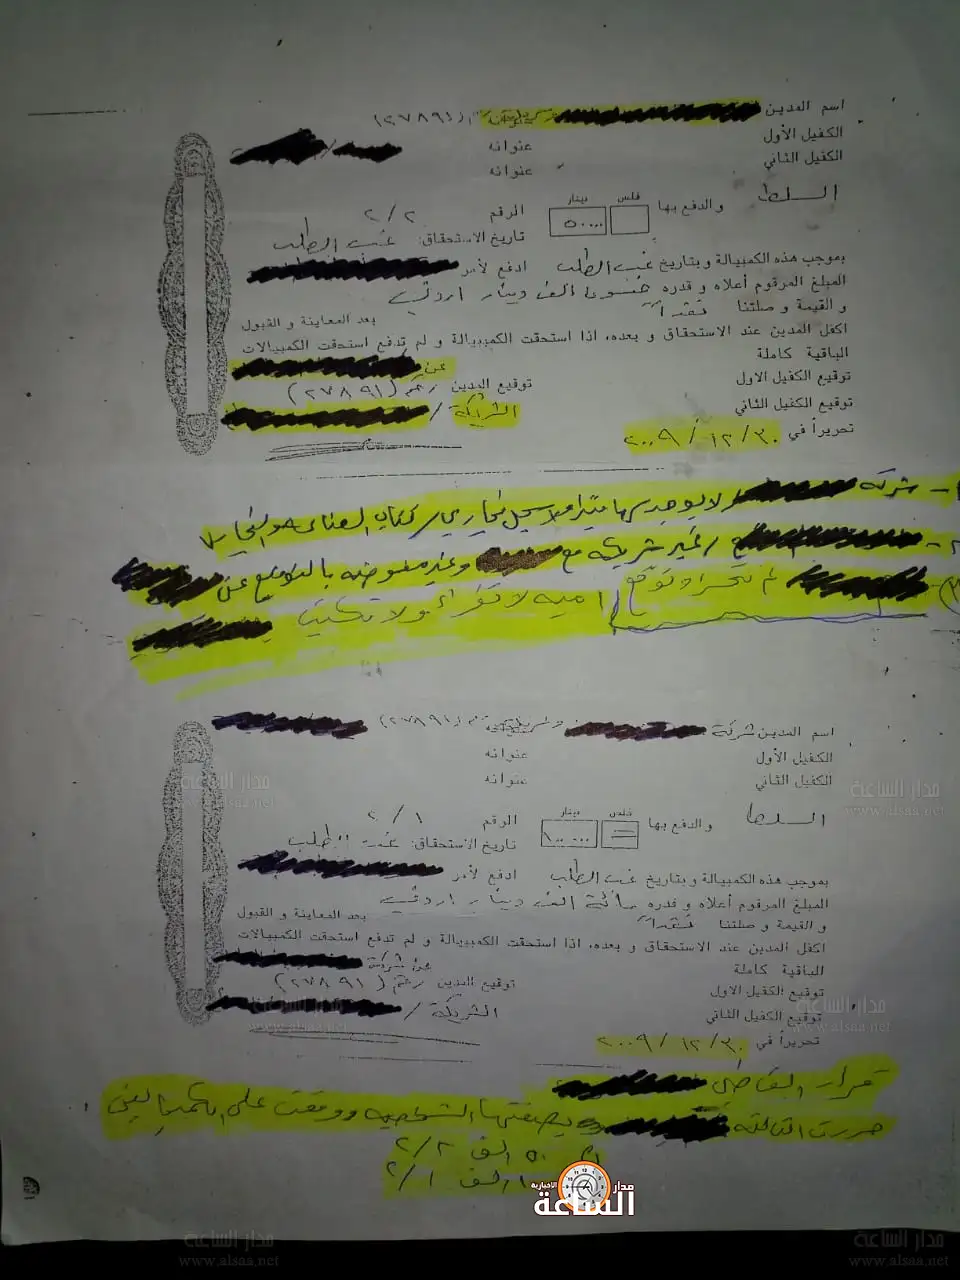 اسم المدين (٢٧٨٩١)
الكفيل الأول عنوانه
الكفيل الثاني عنوانه
السلط والدفع بها فلس دينار ٥٠٠٠٠ الرقم ٢/٢
تاريخ الاستحقاق: غب الطلب
بموجب هذه الكمبيالة وبتاريخ غب الطلب ادفع لأمر
المبلغ المرقوم أعلاه و قدره خمسون الف دينار اردني
و القيمة و صلتنا نقداً بعد المعاينة و القبول
اكفل المدين عند الاستحقاق و بعده، اذا استحقت الكمبيالة و لم تدفع استحقت الكمبيالات
الباقية كاملة عن
توقيع الكفيل الاول توقيع المدين رقم (٢٧٨٩١)
توقيع الكفيل الثاني الشريكة /
تحريراً في ٢٠٠٩/١٢/٣٠
شركة لا يوجد سجل تجاري /
٢- غير شريكة مع وغير مفوضه بالتوقيع عن
٣) لم تحرر او توقع امية لا تقرأ ولا تكتب
اسم المدين شركة (٢٧٨٩١)
الكفيل الأول عنوانه
الكفيل الثاني عنوانه
السلط والدفع بها فلس دينار ١٠٠٠٠٠ الرقم ٢/١
تاريخ الاستحقاق: غب الطلب
بموجب هذه الكمبيالة وبتاريخ غب الطلب ادفع لأمر
المبلغ المرقوم أعلاه و قدره مائة الف دينار اردني
و القيمة و صلتنا نقداً بعد المعاينة و القبول
اكفل المدين عند الاستحقاق و بعده، اذا استحقت الكمبيالة و لم تدفع استحقت الكمبيالات
الباقية كاملة عن شركة
توقيع الكفيل الاول توقيع المدين رقم (٢٧٨٩١)
توقيع الكفيل الثاني الشريكة /
تحريراً في ٢٠٠٩/١٢/٣٠
قرار القاضي
حررت بصفتها الشخصية ووقعت على
٥٠ الف ٢/٢
الف ٢/١
مدار الساعة الاخبارية
مدار الساعة
www.alsaa.net